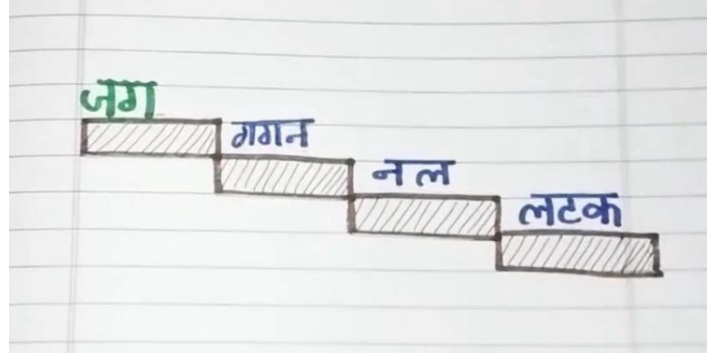 जग
गगन
नल
लटक